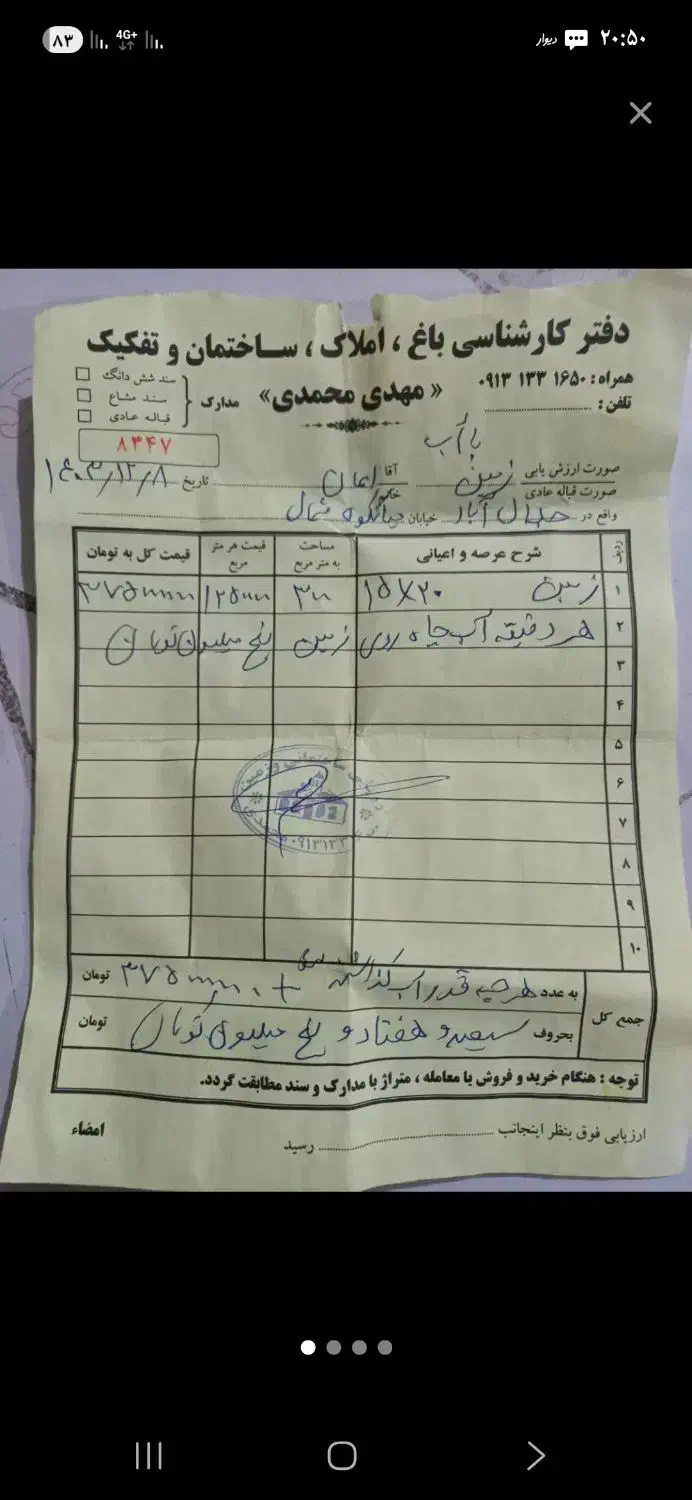 ۸۳ 4G+ دیوار ۲۰:۵۰
دفتر کارشناسی باغ ، املاک ، ساختمان و تفکیک
همراه : ۱۶۵۰ ۱۳۳ ۰۹۱۳
تلفن :
« مهدی محمدی»
مدارک
سند شش دانگ
سند مشاع
قباله عادی
۸۳۴۷
با آب
صورت ارزش یابی زمین آقا ایمان تاریخ ۱۴۰۳/۱۲/۸
صورت قباله عادی خانم
واقع در جلال آباد خیابان میانکوه شمال
ردیف شرح عرصه و اعیانی مساحت به متر مربع قیمت هر متر مربع قیمت کل به تومان
۱ زمین ۱۵X۲۰ ۳۰۰
۲ هر دقیقه آب چاه روی زمین پنج میلیون تومان
۳
۴
۵
۶
۷
۸
۹
۱۰
جمع کل
به عدد هر چه قدر آب + تومان
بحروف سیصد و هفتاد و پنج میلیون تومان تومان
توجه : هنگام خرید و فروش یا معامله ، متراژ با مدارک و سند مطابقت گردد.
ارزیابی فوق بنظر اینجانب رسید امضاء